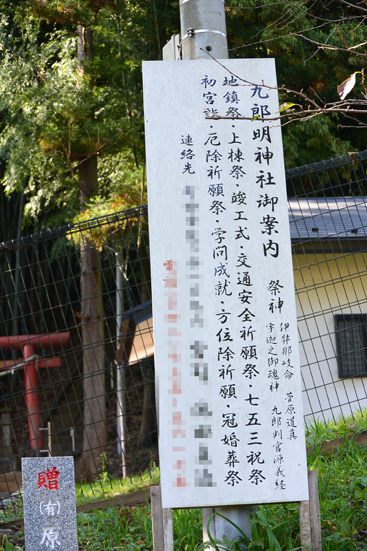 九郎明神社御案内
祭神
伊弉那岐命 菅原道真
宇迦之御魂神 九郎判官源義経
地鎮祭・上棟祭・竣工式・交通安全祈願祭・七五三祝祭
初宮詣・厄除祈願祭・学問成就・方位除祈願・冠婚葬祭
連絡先
電
贈
(有)
原